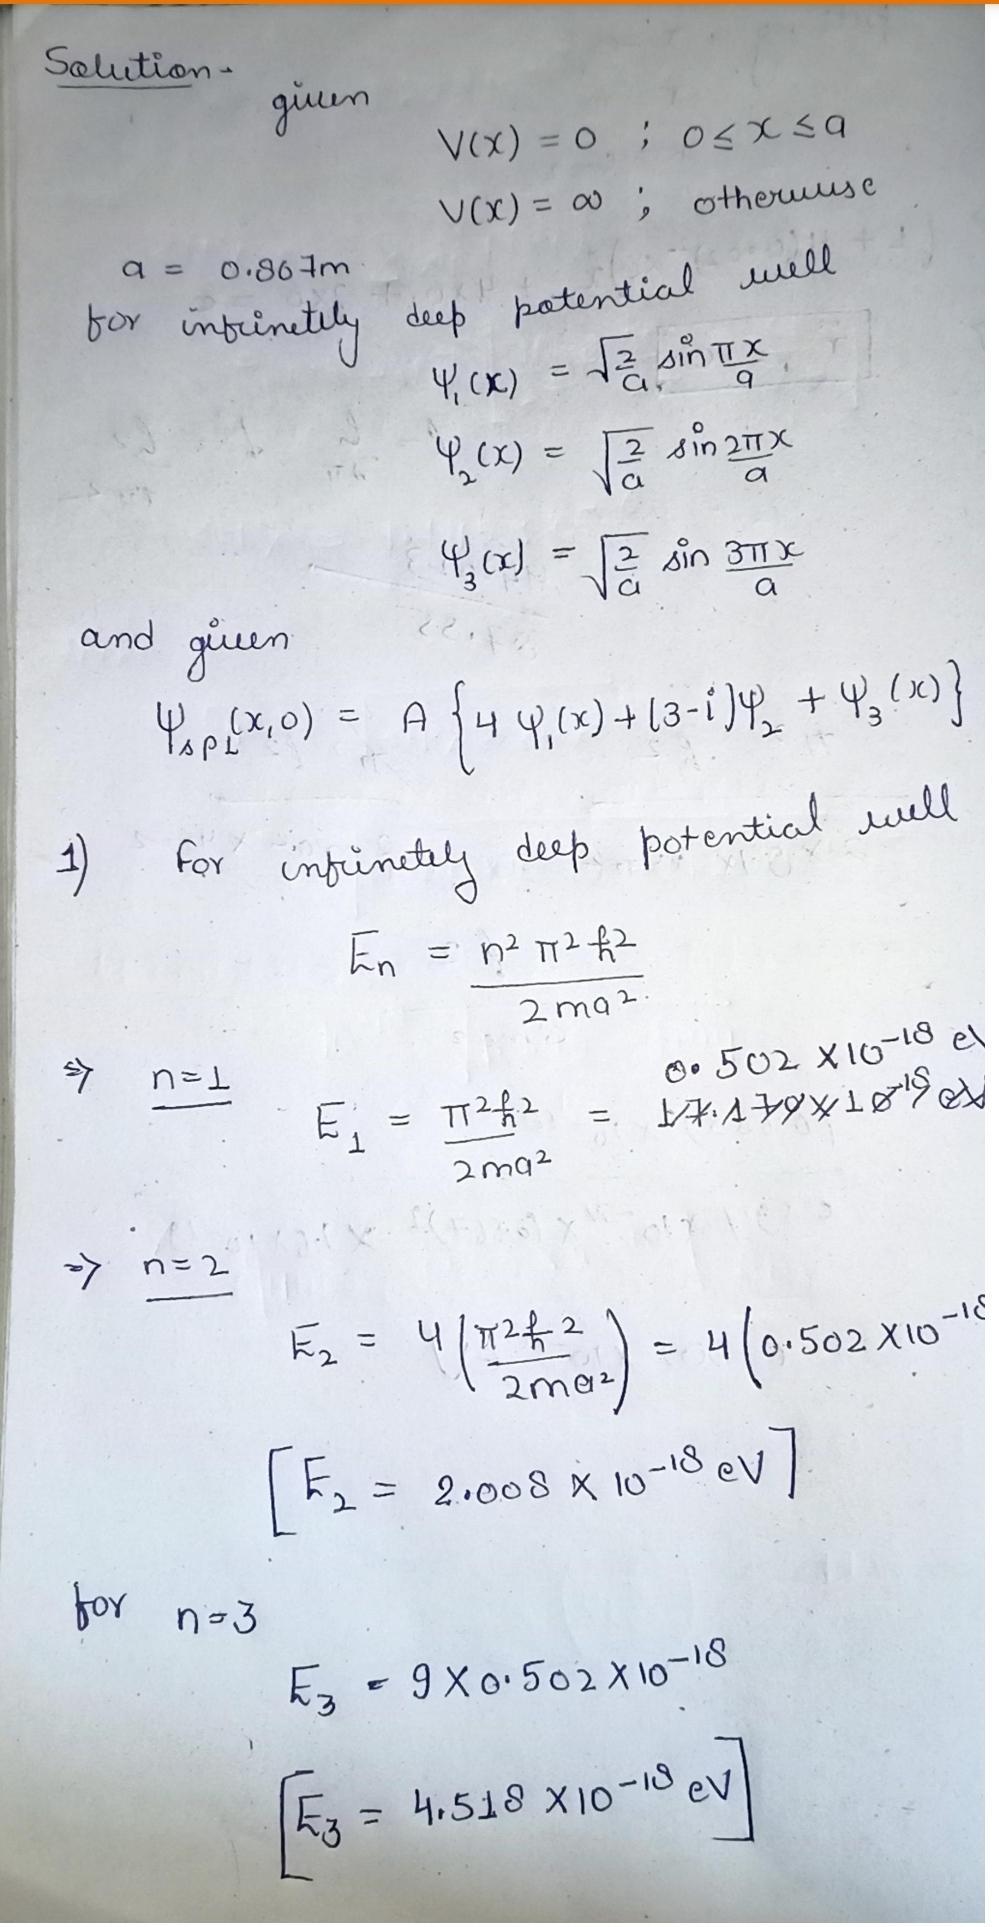 Solution -
given
V(x) = 0 ; 0 ≤ x ≤ a
V(x) = ∞ ; otherwise
a = 0.867m
for infinetily deep potential well
Ψ₁(x) = √(2/a) sin πx/a
Ψ₂(x) = √(2/a) sin 2πx/a
Ψ₃(x) = √(2/a) sin 3πx/a
and given
Ψ_spL(x,0) = A {4 Ψ₁(x) + (3-i)Ψ₂ + Ψ₃(x)}
1) For infinetely deep potential well
En = n² π² ħ² / 2ma²
⇒ n=1
0.502 × 10⁻¹⁸ eV
E₁ = π²ħ² / 2ma² =
⇒ n=2
E₂ = 4 (π²ħ² / 2ma²) = 4 (0.502 × 10⁻¹⁸
[E₂ = 2.008 × 10⁻¹⁸ eV]
for n=3
E₃ = 9 × 0.502 × 10⁻¹⁸
[E₃ = 4.518 × 10⁻¹⁸ eV]